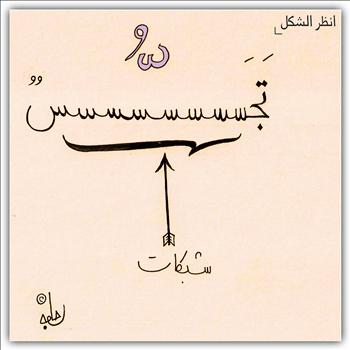 انظر الشكل
تَجَسسسسسسسُّسٌ
شبكات